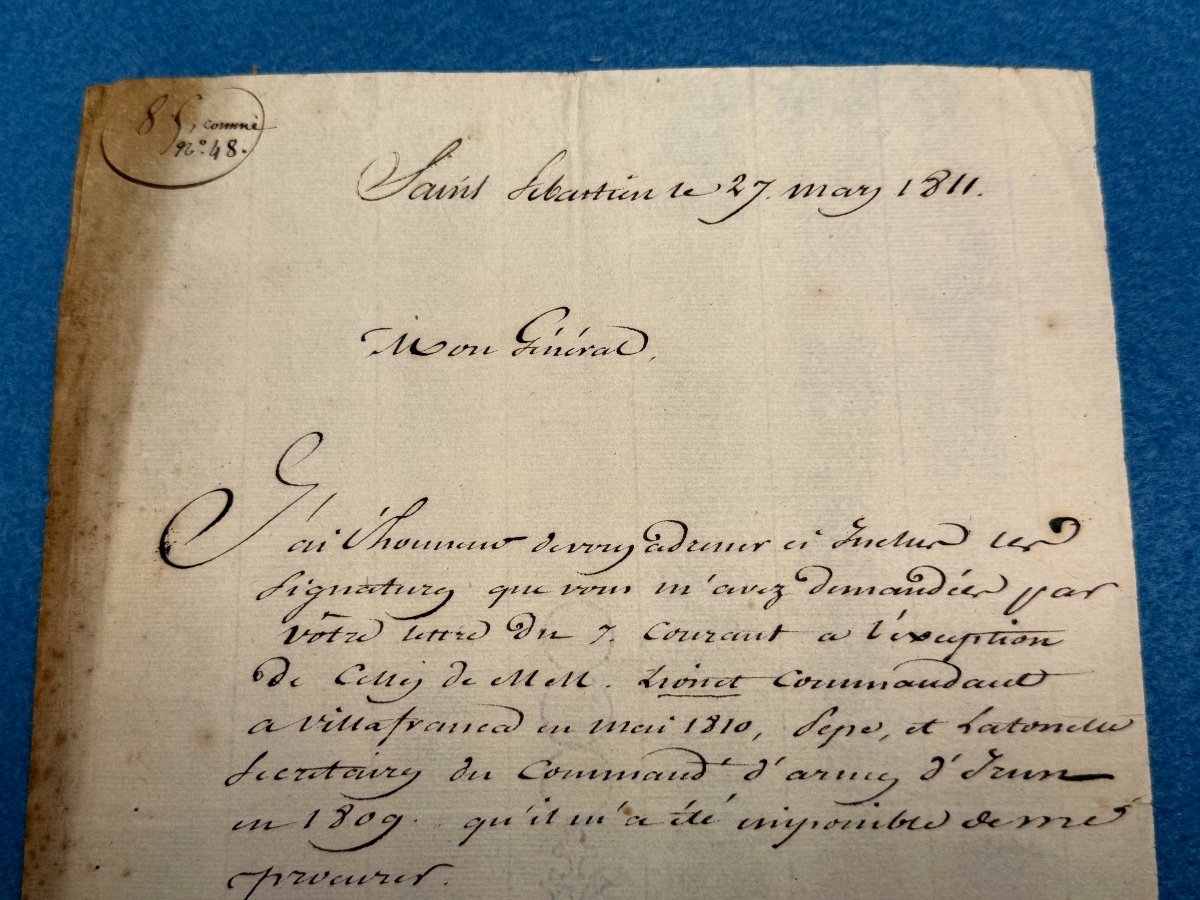 85, comme
no. 48.
Saint Sebastien le 27. mars 1811.
Mon Général,
J'ai l'honneur de vous adresser ci Inclus les
signatures que vous m'avez demandées par
vôtre lettre du 7. Courant a l'exception
de Celles de MM. Commandant
a Villafranca en mai 1810, Pepe, et
secretaires du Command.t d'armes d'Irun
en 1809. qu'il m'a été impossible de me
procurer.